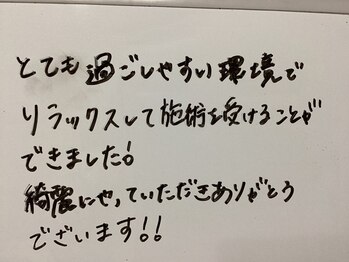 とても過ごしやすい環境で
リラックスして施術を受けることが
できました!
綺麗にやっていただきありがとう
でざいます!!